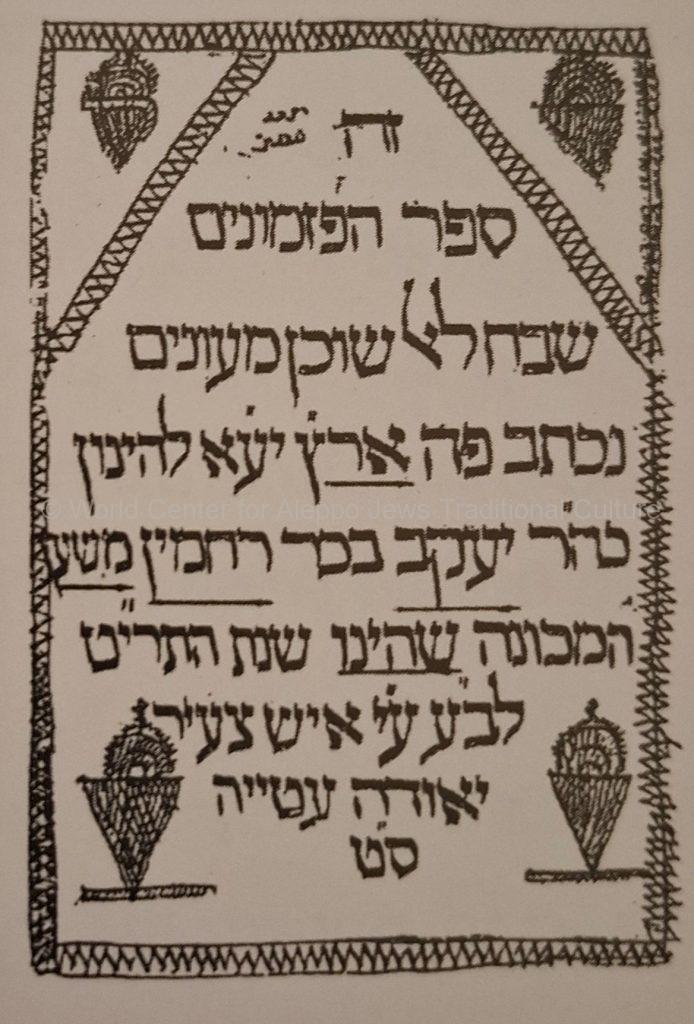 זה
ספר הפזמונים
שבח לאל שוכן מעונים
נכתב פה אר״ץ יע״א להינון
כה״ר יעקב בכר רחמין משען
המכונה שהינו שנת התרי״ט
לבע ע״י איש צעיר
יאודה עטייה
ס״ט
© World Center for Aleppo Jews Traditional Culture